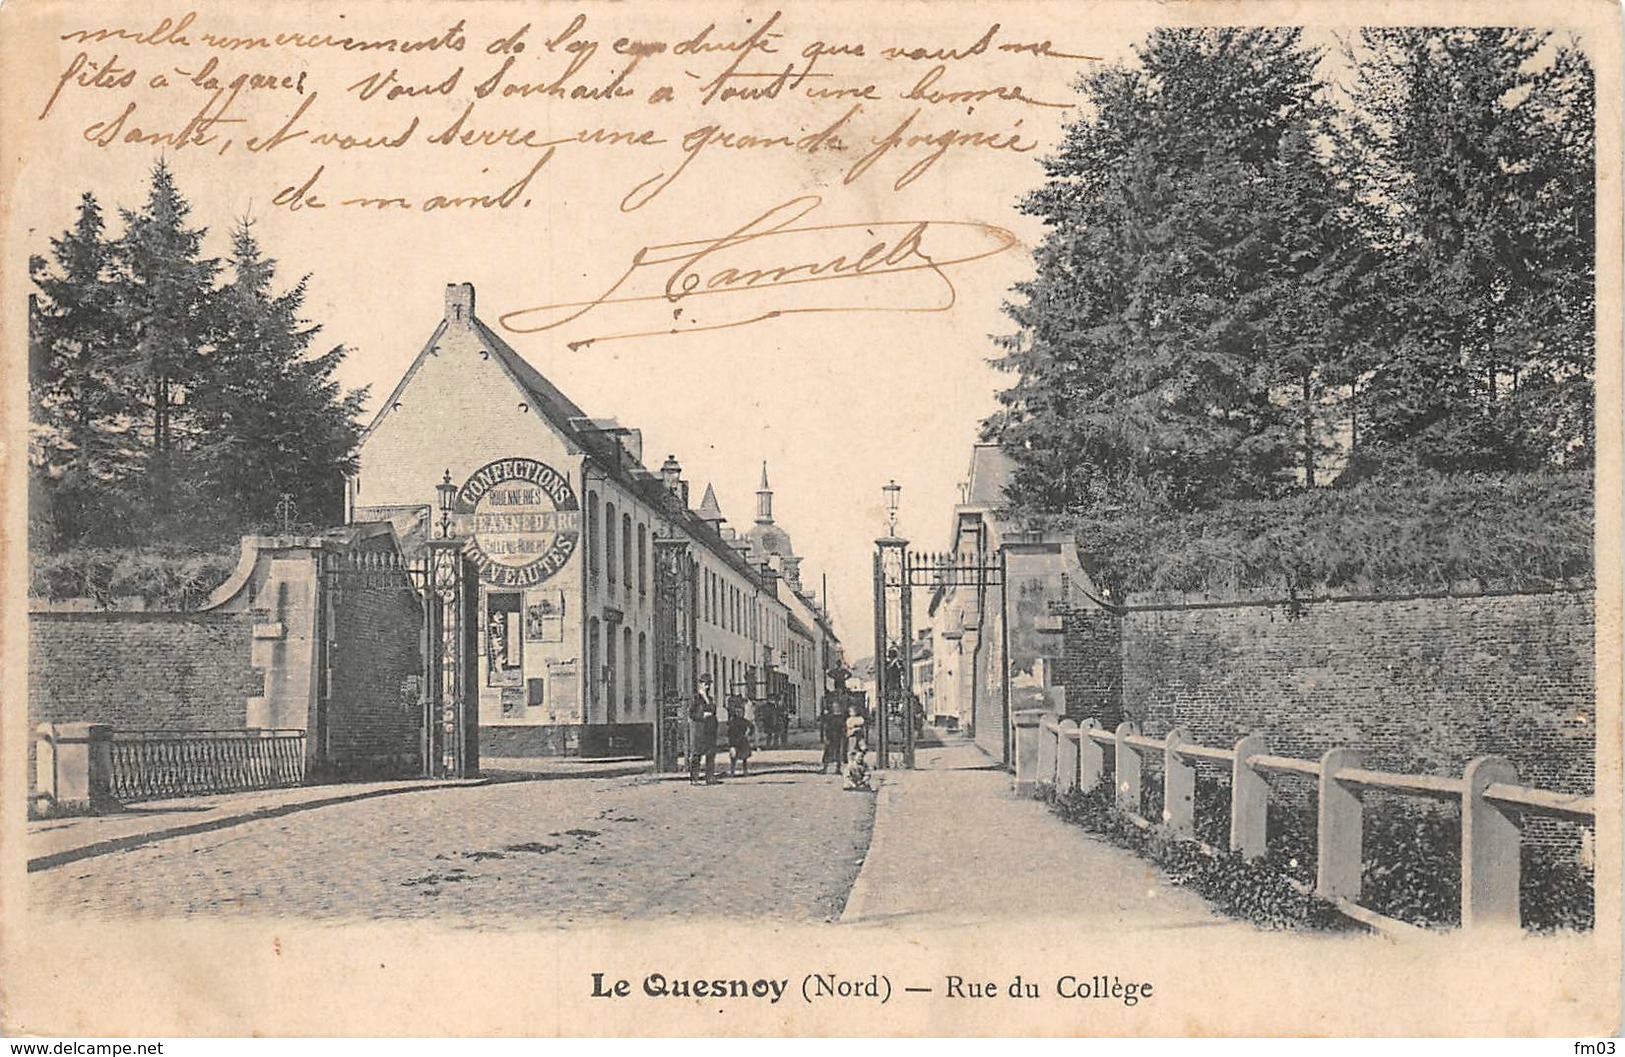 mille remerciements de la conduite que vous me
fites à la gare, Vous souhaite à tous une bonne
santé, et vous serre une grande poignée
de mains.
Camille
CONFECTIONS
ROUENNERIES
A JEANNE D'ARC
NOUVEAUTÉS
Le Quesnoy (Nord) — Rue du Collège
www.delcampe.net
fm03